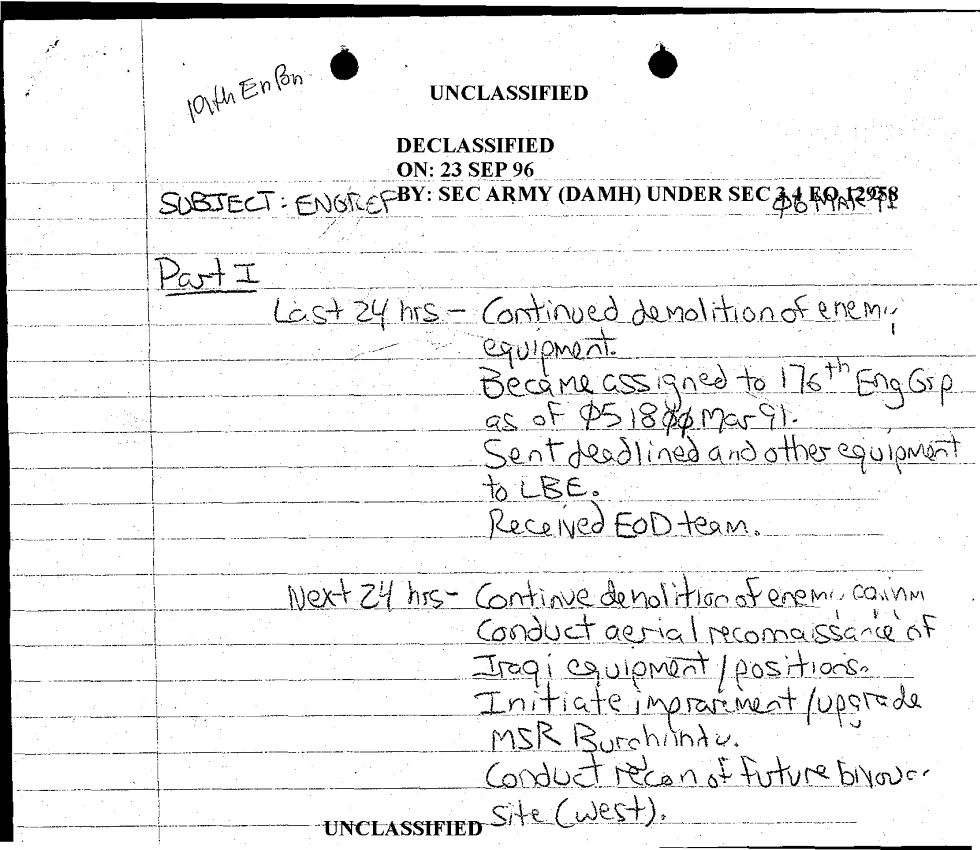 19th En Bn
UNCLASSIFIED
DECLASSIFIED
ON: 23 SEP 96
BY: SEC ARMY (DAMH) UNDER SEC 3.4 EO 12958
SUBJECT: ENGREF
06 MAR 91
Part I
Last 24 hrs - Continued demolition of enemy
equipment.
Became assigned to 176th Eng Grp
as of 051800 Mar 91.
Sent deadlined and other equipment
to LBE.
Received EOD team.
Next 24 hrs - Continue demolition of enemy
Conduct aerial reconnaissance of
Iraqi equipment/positions.
Initiate improvement/upgrade
MSR
Conduct recon of future
site (west).
UNCLASSIFIED